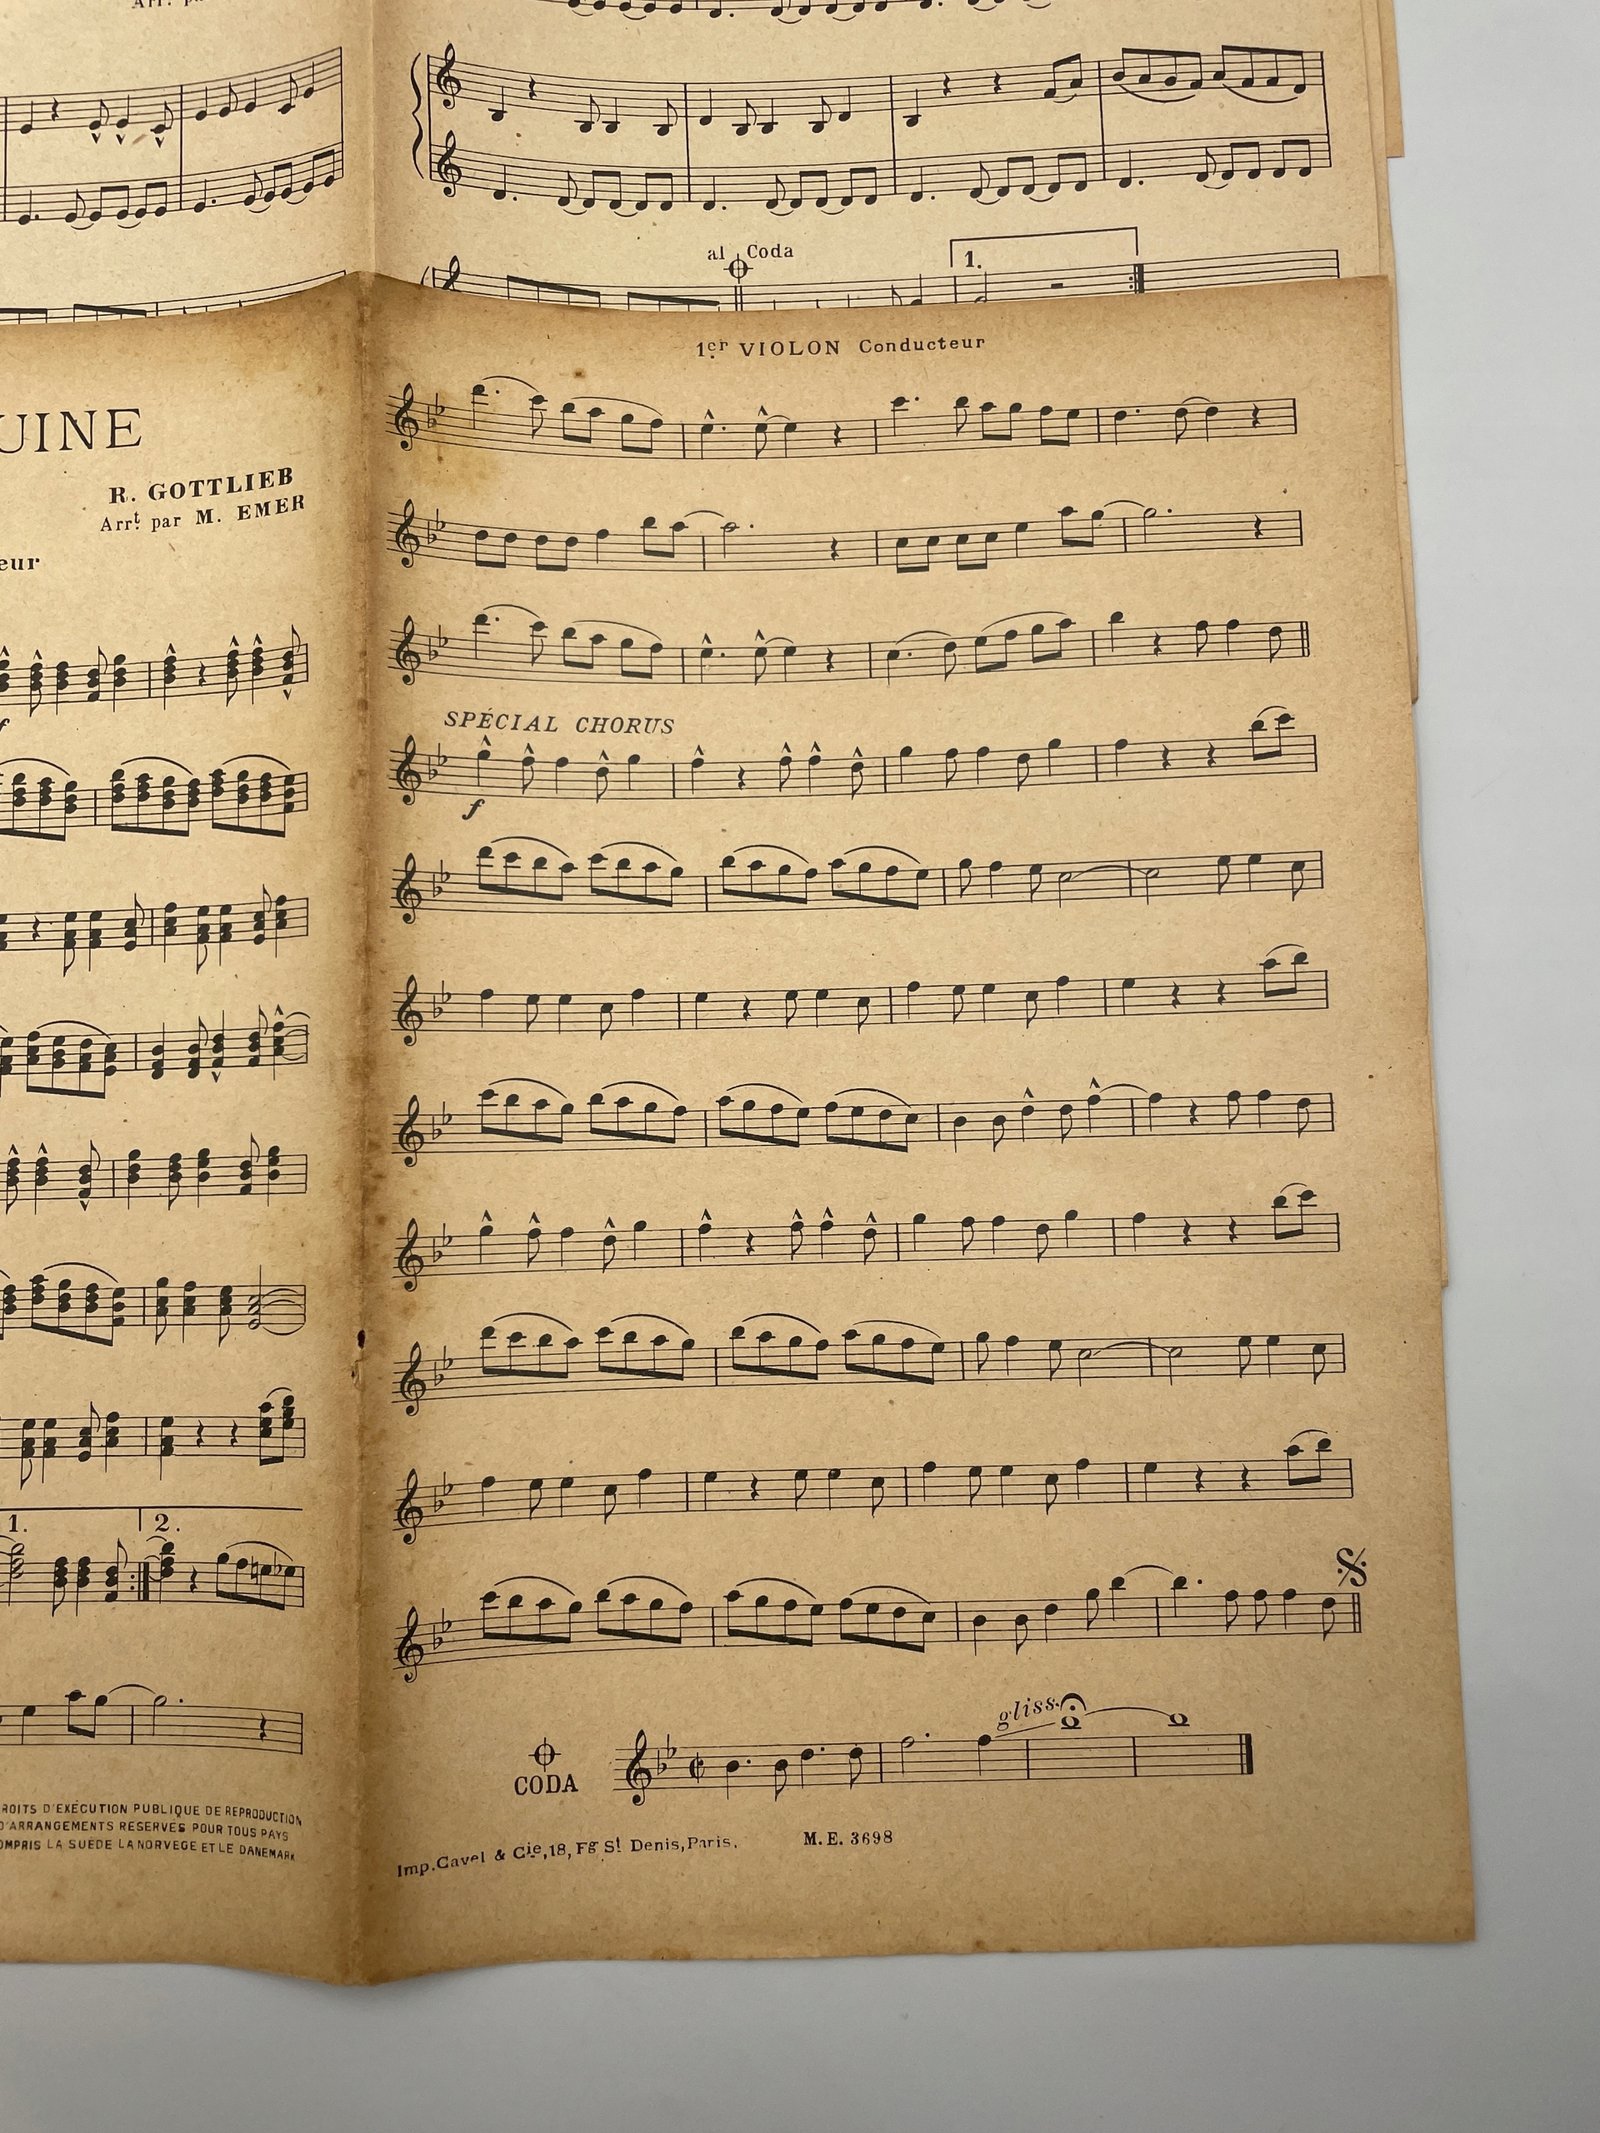 al Coda
1.
1er VIOLON Conducteur
UINE
R. GOTTLIEB
Arrt par M. EMER
eur
SPÉCIAL CHORUS
f
f
1.
2.
gliss.
CODA
ROITS D'EXÉCUTION PUBLIQUE DE REPRODUCTION
D'ARRANGEMENTS RESERVÉS POUR TOUS PAYS
OMPRIS LA SUÈDE LA NORVEGE ET LE DANEMARK
Imp. Cavel & Cie, 18, Fg St Denis, Paris.
M.E. 3698